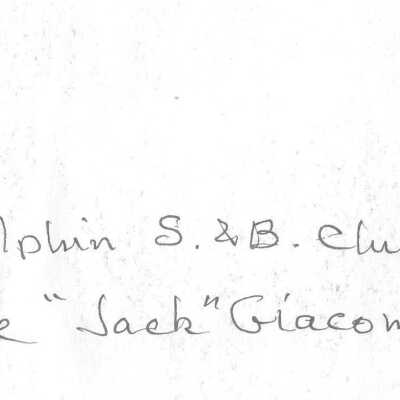 lphin S. & B. Clu
e "Jack" Giacom